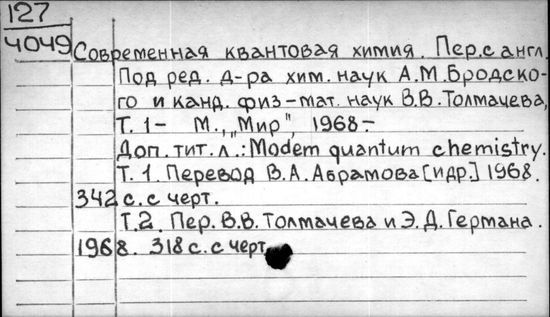 127
4049 Современная квантовая химия. Пер. с англ.
Под ред. д-ра хим. наук А.М. Бродско-
го и канд. физ-мат. наук В.В. Толмачева,
Т. 1- М., „Мир", 1968-
Доп. тит. л.: Modem quantum chemistry.
Т. 1. Перевод В.А. Абрамова [и др.] 1968.
342 с. с черт.
Т.2. Пер. В.В. Толмачева и Э.Д. Германа.
1968. 318 с. с черт